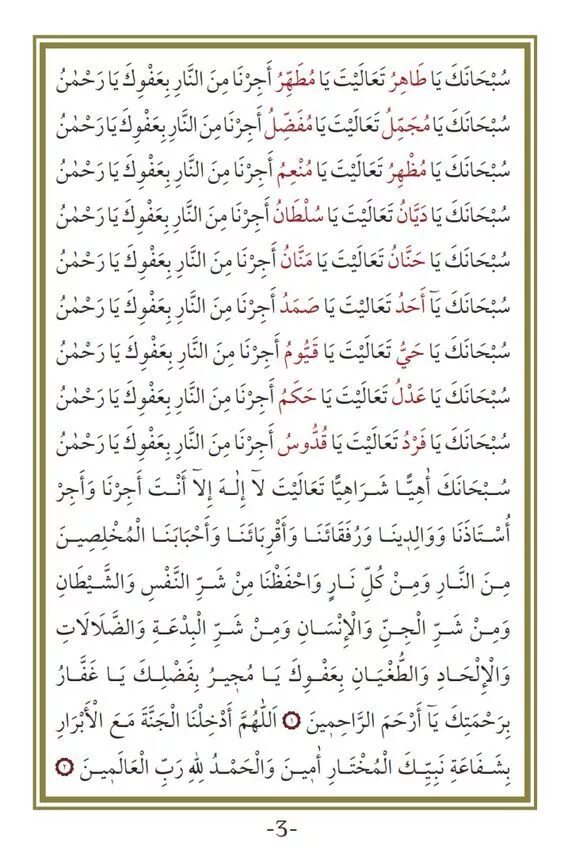 سُبْحَانَكَ يَا طَاهِرُ تَعَالَيْتَ يَا مُطَهِّرُ أَجِرْنَا مِنَ النَّارِ بِعَفْوِكَ يَا رَحْمٰنُ
سُبْحَانَكَ يَا مُجَمِّلُ تَعَالَيْتَ يَا مُفَضِّلُ أَجِرْنَا مِنَ النَّارِ بِعَفْوِكَ يَا رَحْمٰنُ
سُبْحَانَكَ يَا مُظْهِرُ تَعَالَيْتَ يَا مُنْعِمُ أَجِرْنَا مِنَ النَّارِ بِعَفْوِكَ يَا رَحْمٰنُ
سُبْحَانَكَ يَا دَيَّانُ تَعَالَيْتَ يَا سُلْطَانُ أَجِرْنَا مِنَ النَّارِ بِعَفْوِكَ يَا رَحْمٰنُ
سُبْحَانَكَ يَا حَنَّانُ تَعَالَيْتَ يَا مَنَّانُ أَجِرْنَا مِنَ النَّارِ بِعَفْوِكَ يَا رَحْمٰنُ
سُبْحَانَكَ يَآ أَحَدُ تَعَالَيْتَ يَا صَمَدُ أَجِرْنَا مِنَ النَّارِ بِعَفْوِكَ يَا رَحْمٰنُ
سُبْحَانَكَ يَا حَيُّ تَعَالَيْتَ يَا قَيُّومُ أَجِرْنَا مِنَ النَّارِ بِعَفْوِكَ يَا رَحْمٰنُ
سُبْحَانَكَ يَا عَدْلُ تَعَالَيْتَ يَا حَكَمُ أَجِرْنَا مِنَ النَّارِ بِعَفْوِكَ يَا رَحْمٰنُ
سُبْحَانَكَ يَا فَرْدُ تَعَالَيْتَ يَا قُدُّوسُ أَجِرْنَا مِنَ النَّارِ بِعَفْوِكَ يَا رَحْمٰنُ
سُبْحَانَكَ أٰهِيًّا شَرَاهِيًّا تَعَالَيْتَ لَآ إِلٰهَ إِلَّآ أَنْتَ أَجِرْنَا وَأَجِرْ
أُسْتَاذَنَا وَوَالِدِينَا وَرُفَقَائَنَا وَأَقْرِبَائَنَا وَأَحْبَابَنَا الْمُخْلِصِينَ
مِنَ النَّارِ وَمِنْ كُلِّ نَارٍ وَاحْفَظْنَا مِنْ شَرِّ النَّفْسِ وَالشَّيْطَانِ
وَمِنْ شَرِّ الْجِنِّ وَالْإِنْسَانِ وَمِنْ شَرِّ الْبِدْعَةِ وَالضَّلَالَاتِ
وَالْإِلْحَادِ وَالطُّغْيَانِ بِعَفْوِكَ يَا مُجِيرُ بِفَضْلِكَ يَا غَفَّارُ
بِرَحْمَتِكَ يَآ أَرْحَمَ الرَّاحِمِينَ ١ اَللّٰهُمَّ أَدْخِلْنَا الْجَنَّةَ مَعَ الْأَبْرَارِ
بِشَفَاعَةِ نَبِيِّكَ الْمُخْتَارِ أٰمِينَ وَالْحَمْدُ لِلّٰهِ رَبِّ الْعَالَمِينَ ٢
-3-